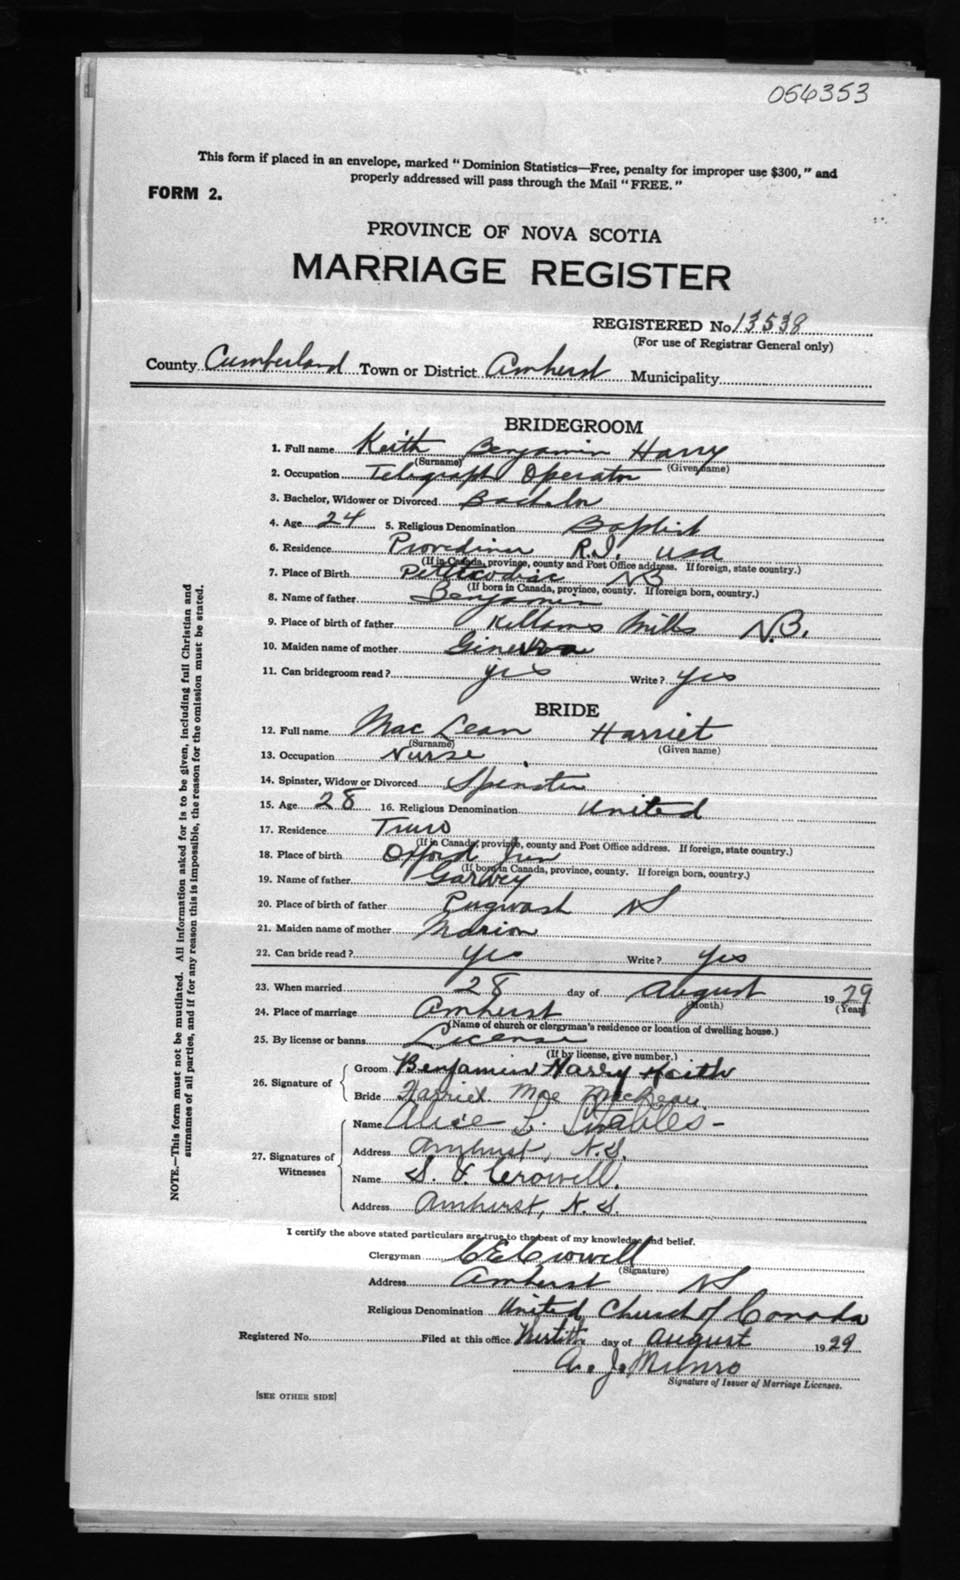 056353
This form if placed in an envelope, marked "Dominion Statistics—Free, penalty for improper use $300," and
properly addressed will pass through the Mail "FREE."
FORM 2.
PROVINCE OF NOVA SCOTIA
MARRIAGE REGISTER
REGISTERED No. 13538
(For use of Registrar General only)
County Cumberland Town or District Amherst Municipality
BRIDEGROOM
1. Full name Keith Benjamin Harry
(Surname) (Given name)
2. Occupation Telegraph Operator
3. Bachelor, Widower or Divorced Bachelor
4. Age 24 5. Religious Denomination Baptist
6. Residence Providence R.I. USA
(If in Canada, province, county and Post Office address. If foreign, state country.)
7. Place of Birth Petitcodiac NB
(If born in Canada, province, county. If foreign born, country.)
8. Name of father Benjamin
9. Place of birth of father Killams Mills N.B.
10. Maiden name of mother
11. Can bridegroom read? yes Write? yes
BRIDE
12. Full name MacLean Harriet
(Surname) (Given name)
13. Occupation Nurse
14. Spinster, Widow or Divorced Spinster
15. Age 28 16. Religious Denomination United
17. Residence Truro
(If in Canada, province, county and Post Office address. If foreign, state country.)
18. Place of birth Oxford Jun
(If born in Canada, province, county. If foreign born, country.)
19. Name of father Garvey
20. Place of birth of father Pugwash NS
21. Maiden name of mother Marion
22. Can bride read? Yes Write? Yes
23. When married 28 day of August 1929
(Month) (Year)
24. Place of marriage Amherst
(Name of church or clergyman's residence or location of dwelling house.)
25. By license or banns License
(If by license, give number.)
26. Signature of Groom Benjamin Harry Keith
Bride Harriet Mae MacLean.
27. Signatures of Witnesses
Name Alice L. Stables-
Address Amherst, N.S.
Name S. Crowell.
Address Amherst, N.S.
I certify the above stated particulars are true to the best of my knowledge and belief.
Clergyman C E Crowell
(Signature)
Address Amherst NS
Religious Denomination United Church of Canada
Registered No. Filed at this office day of August 1929
A. J. Munro
Signature of Issuer of Marriage Licenses.
[SEE OTHER SIDE]
NOTE.—This form must not be mutilated. All information asked for is to be given, including full Christian and
surnames of all parties, and if for any reason this is impossible, the reason for the omission must be stated.